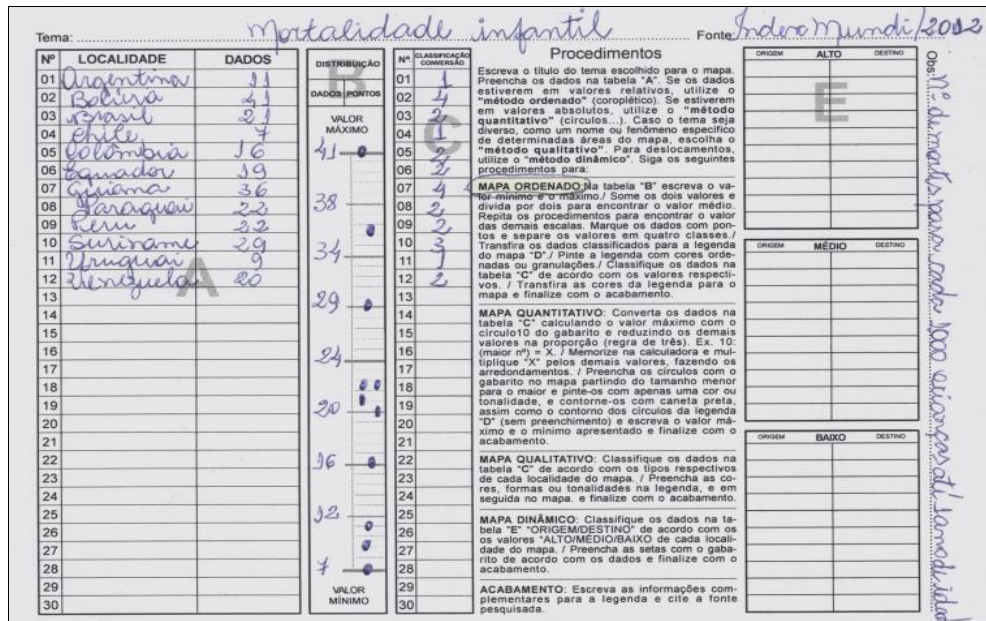 Tema: Mortalidade infantil Fonte: Index Mundi/2012
Nº LOCALIDADE DADOS
01 Argentina 11
02 Bolívia 41
03 Brasil 21
04 Chile 7
05 Colômbia 16
06 Equador 19
07 Guiana 36
08 Paraguai 22
09 Peru 22
10 Suriname 29
11 Uruguai 9
12 Venezuela 20
13
14
15
16
17
18
19
20
21
22
23
24
25
26
27
28
29
30
A
B
DISTRIBUIÇÃO
DADOS PONTOS
VALOR
MÁXIMO
41
38
34
29
24
20
16
12
7
VALOR
MÍNIMO
C
Nº CLASSIFICAÇÃO
CONVERSÃO
01 1
02 4
03 2
04 1
05 2
06 2
07 4
08 2
09 2
10 3
11 1
12 2
13
14
15
16
17
18
19
20
21
22
23
24
25
26
27
28
29
30
Procedimentos
Escreva o título do tema escolhido para o mapa.
Preencha os dados na tabela "A". Se os dados
estiverem em valores relativos, utilize o
"método ordenado" (coroplético). Se estiverem
em valores absolutos, utilize o "método
quantitativo" (círculos...). Caso o tema seja
diverso, como um nome ou fenômeno específico
de determinadas áreas do mapa, escolha o
"método qualitativo". Para deslocamentos,
utilize o "método dinâmico". Siga os seguintes
procedimentos para:
MAPA ORDENADO: Na tabela "B" escreva o va-
lor mínimo e o máximo./ Some os dois valores e
divida por dois para encontrar o valor médio.
Repita os procedimentos para encontrar o valor
das demais escalas. Marque os dados com pon-
tos e separe os valores em quatro classes./
Transfira os dados classificados para a legenda
do mapa "D"./ Pinte a legenda com cores orde-
nadas ou granulações./ Classifique os dados na
tabela "C" de acordo com os valores respecti-
vos. / Transfira as cores da legenda para o
mapa e finalize com o acabamento.
MAPA QUANTITATIVO: Converta os dados na
tabela "C" calculando o valor máximo com o
círculo10 do gabarito e reduzindo os demais
valores na proporção (regra de três). Ex. 10:
(maior nº) = X. / Memorize na calculadora e mul-
tiplique "X" pelos demais valores, fazendo os
arredondamentos. / Preencha os círculos com o
gabarito no mapa partindo do tamanho menor
para o maior e pinte-os com apenas uma cor ou
tonalidade, e contorne-os com caneta preta,
assim como o contorno dos círculos da legenda
"D" (sem preenchimento) e escreva o valor má-
ximo e o mínimo apresentado e finalize com o
acabamento.
MAPA QUALITATIVO: Classifique os dados na
tabela "C" de acordo com os tipos respectivos
de cada localidade do mapa. / Preencha as co-
res, formas ou tonalidades na legenda, e em
seguida no mapa. e finalize com o acabamento.
MAPA DINÂMICO: Classifique os dados na ta-
bela "E" "ORIGEM/DESTINO" de acordo com os
os valores "ALTO/MÉDIO/BAIXO de cada locali-
dade do mapa. / Preencha as setas com o gaba-
rito de acordo com os dados e finalize com o
acabamento.
ACABAMENTO: Escreva as informações com-
plementares para a legenda e cite a fonte
pesquisada.
E
ORIGEM ALTO DESTINO
ORIGEM MÉDIO DESTINO
ORIGEM BAIXO DESTINO
Obs: Nº de mortes para cada 1000 crianças até 1 ano de idade